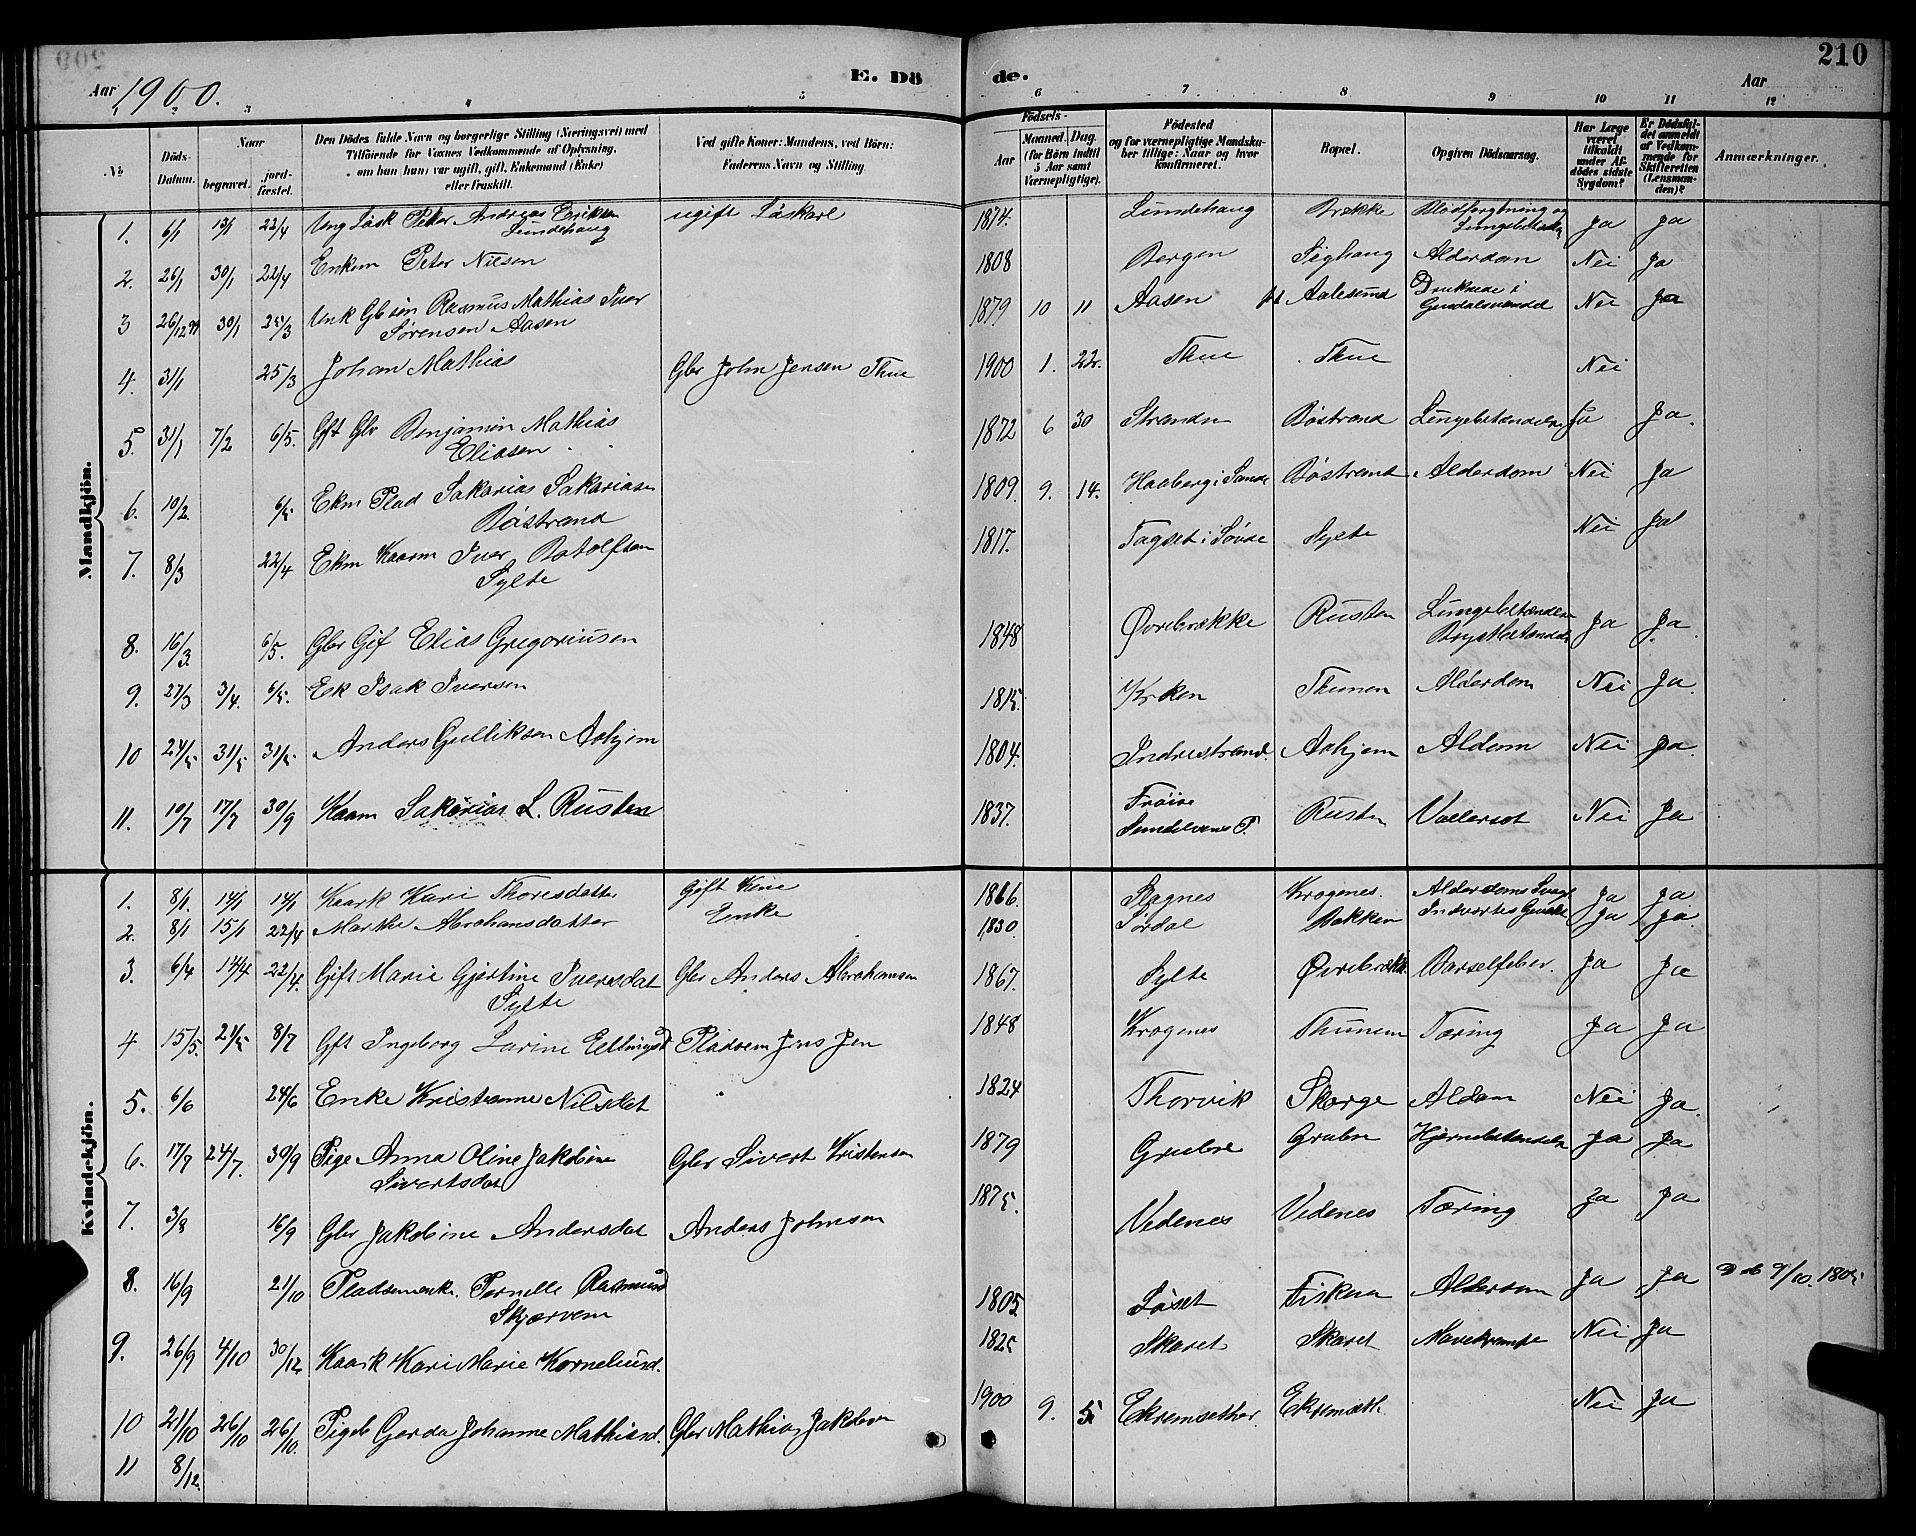 210
Aar 1900. E. Dö de. Aar
1 2 3 4 5 6 7 8 9 10 11 12
No
Döds-Datum.
Naar
begravet.
jordfæstet.
Den Dödes fulde Navn og borgerlige Stilling (Næringsvei) med
Tilföiende for Voxnes Vedkommende af Oplysning.
om han (hun) var ugift, gift, Enkemand (Enke)
eller fraskilt.
Ved gifte Koner: Mandens, ved Börn:
Faderens Navn og Stilling.
Födsels-
Aar
Maaned. Dag.
(for Börn indtil
5 Aar samt
Værnepligtige).
Födested
og for værnepligtige Mandska-
ber tillige: Naar og hvor
konfirmeret.
Bopæl.
Opgiven Dödsaarsag.
Har Læge
været
tilkaldt
under Af-
dödes sidste
Sygdom?
Er Dödsfal-
det anmeldt
af Vedkom-
mende for
Skifteretten
(Lensman-
den)?
Anmærkninger.
Mandkjön.
1. 6/1 13/1 22/4 Ung Løsk Peter Andreas Eriksen Lundehaug ugift Løskarl 1874. Lundehaug Brække Ja Ja
2. 26/1 30/1 22/4 Enkem Peter Nilsen 1808 Bergen Sighaug Alderdom Nei Ja
3 26/12 99 30/1 25/3 Unk Gbsøn Rasmus Mathias Iver Sørensen Aasen 1879 10 11 Aasen Aalesund Druknede i Nei Ja
4. 31/1 25/3 Johan Mathias Gbr John Jensen Thue 1900 1. 22. Thue Thue Nei
5. 31/1 7/2 6/5. Gft Gbr Benjamin Mathias Eliasen 1872 6 30 Stranden Bøstrand Lungebetændelse Ja Ja.
6. 10/2. 6/5 Ekm Plad Sakarias Sakariasen Bøstrand 1809. 9. 14. Haaberg i Sande Bøstrand Alderdom Nei Ja
7. 8/3 22/4 Ekm Kaarm Iver Botolfsen Sylte 1817. Fagset i Søvde Sylte Nei Ja
8. 16/3. 6/5. Gbr Gif Elias Gregoriusen 1848 Øvrebrække Rusten Lungebetændelse Brystbetændelse Ja Ja.
9. 27/3 3/4. 6/5. Ek Isak Iversen 1815. Kirken Thunem Alderdom Nei Ja.
10 24/5 31/5 31/5 Anders Gulliksen Aahjem 1804. Indrestrand. Aahjem Alderm Nei Ja.
11. 10/7 17/7 30/9 Kaarm Sakarias L. Rusten 1837. Frøise Rusten Vattersot Nei Ja
Kvindekjön.
1. 8/1. 14/1 14/1 Kaark Kari Thoresdatter Gift Kone 1866. Stagnes Krogenes. Alderdoms Svagh Ja Ja
2. 8/1 15/1 22/4 Marthe Abrahamsdatter Enke 1830. Sørdal Bakken Indvortes Ja Ja.
3. 6/4 14/4 22/4. Gift Marie Gjertine Iversdat Sylte Gbr Anders Abrahamsen 1867. Sylte Øvrebrække Barselfeber. Ja Ja
4 15/5. 21/5 8/7 Gft Ingeborg Larine Ellingsd Pladsem Jens Jen 1848 Krogenes Thunem Tæring Ja Ja
5. 6/6 24/6 Enke Kristianne Nilsdat 1824 Thorvik Skorge Aldom Nei Ja.
6. 17/7 24/7. 30/9 Pige Anna Oline Jakobine Sivertsdat Gbr Sivert Kristensen 1879 Grubse Grubse Hjernebetændelse Ja Ja
7. 3/8 16/9 Gbr Jakobine Andersdat Anders Johnsen 1875. Vedenes Vedenes Tæring Ja Ja
8. 16/9 21/10 Pladsemenke. Pernelle Rasmusd Skjærvem 1805 Løset Fisknes Alderdom Ja Ja 9/10 1805
9. 26/9 4/10 30/12 Kaark Kari Marie Korneliusd. 1825 Skaret Skaret Mavekrampe Nei Ja
10 21/10 26/10 26/10. Pigeb Gerda Johanne Mathiasd. Gbr Mathias Jakobsen 1900 9. 5 Ekremsether Ekremseth Nei Ja
11 8/12.